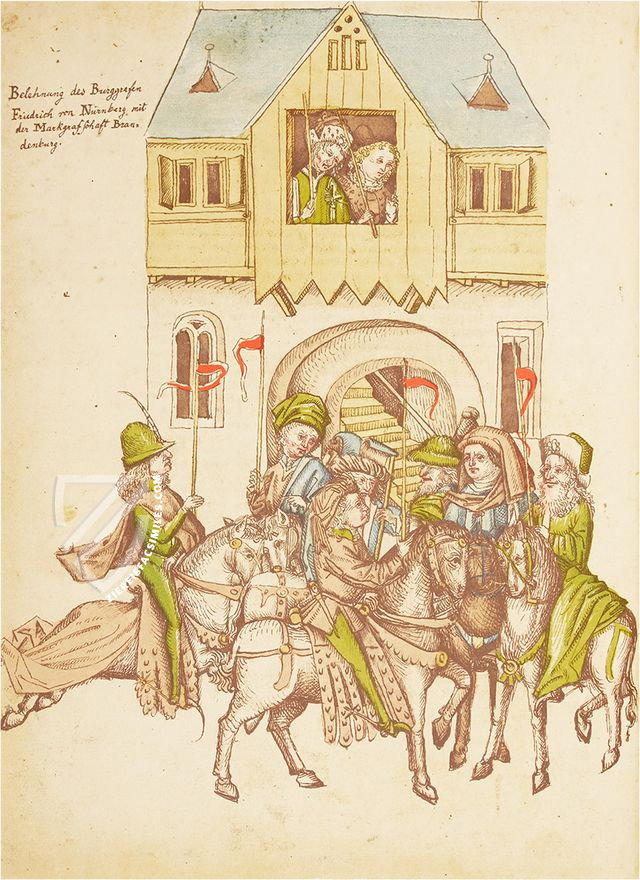 Belehnung des Burggrafen
Friedrich von Nürnberg mit
der Markgrafschaft Bran-
denburg.
ZIEREWALSIMILES.COM